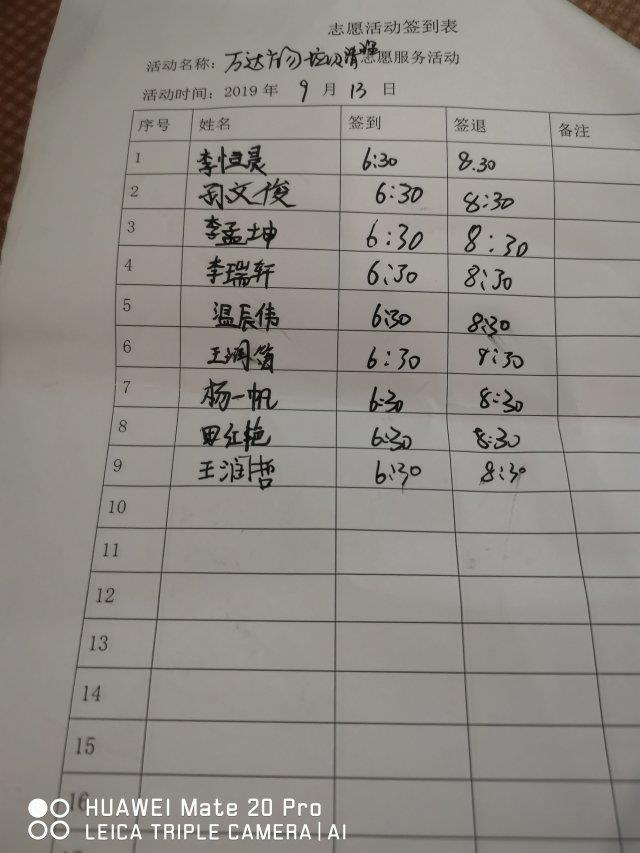 志愿活动签到表
活动名称：万达广场垃圾清理志愿服务活动
活动时间：2019年 9 月 13 日
序号 姓名 签到 签退 备注
1 李恒晨 6:30 8.30
2 刘文俊 6:30 8:30
3 李孟坤 6:30 8:30
4 李瑞轩 6:30 8:30
5 温辰伟 6:30 8:30
6 王润 6:30 8:30
7 杨一帆 6:30 8:30
8 田红艳 6:30 8:30
9 王润哲 6:30 8:30
10
11
12
13
14
15
16
HUAWEI Mate 20 Pro
LEICA TRIPLE CAMERA | AI